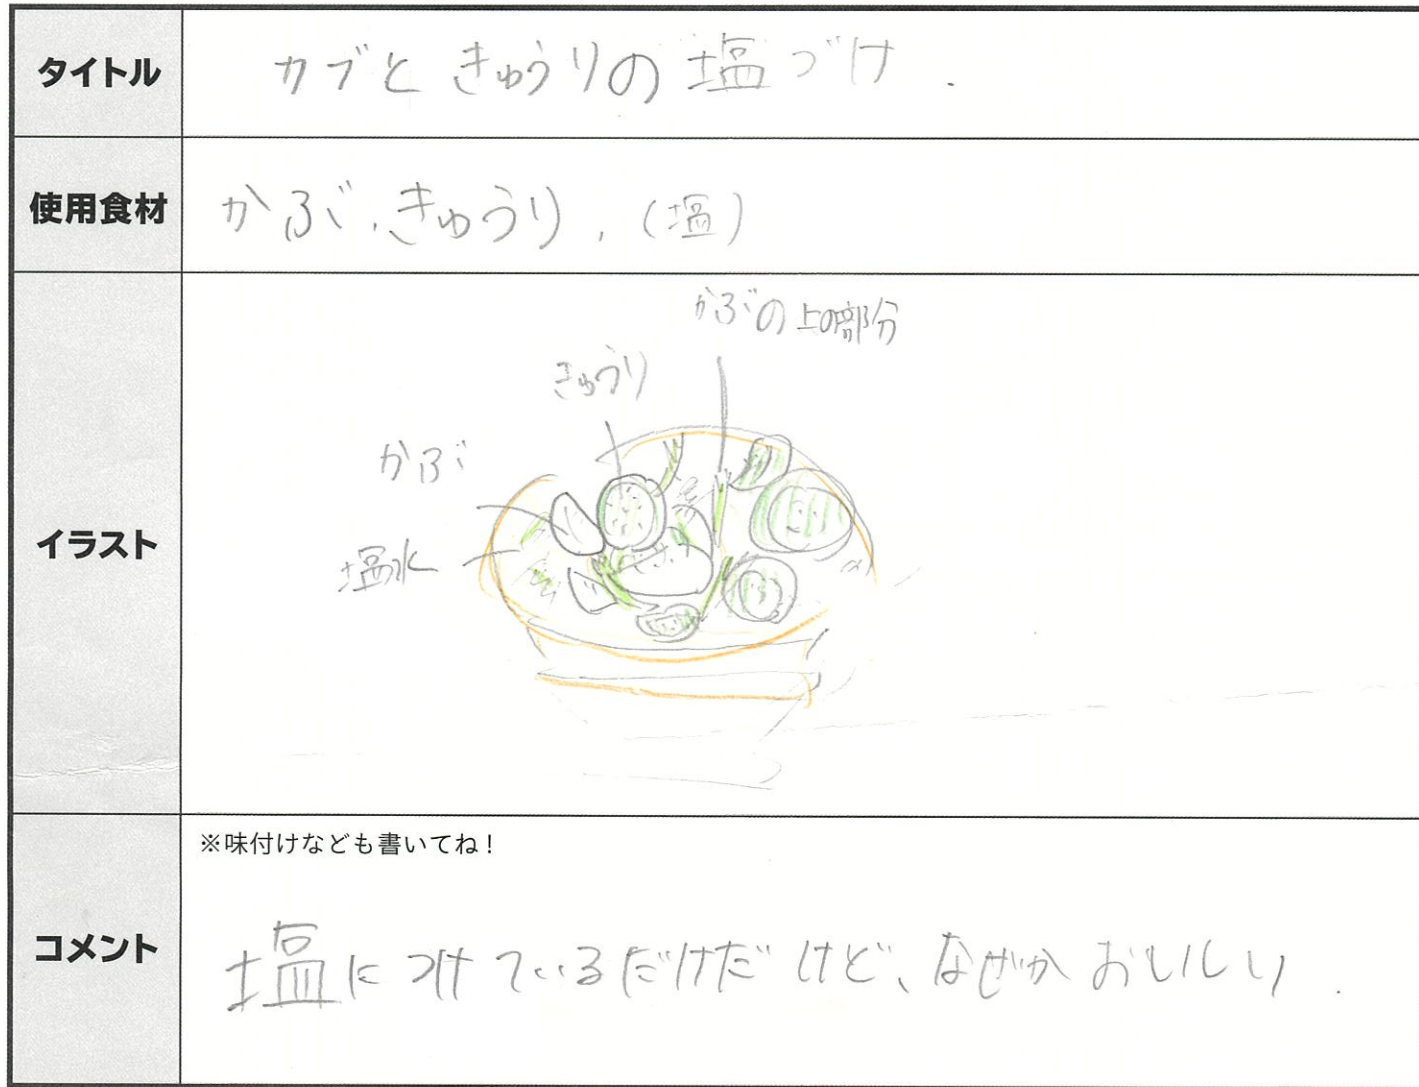 タイトル
カブときゅうりの塩づけ.
使用食材
かぶ、きゅうり、(塩)
イラスト
かぶの上の部分
きゅうり
かぶ
塩水
コメント
※味付けなども書いてね！
塩につけているだけだけど、なぜかおいしい.